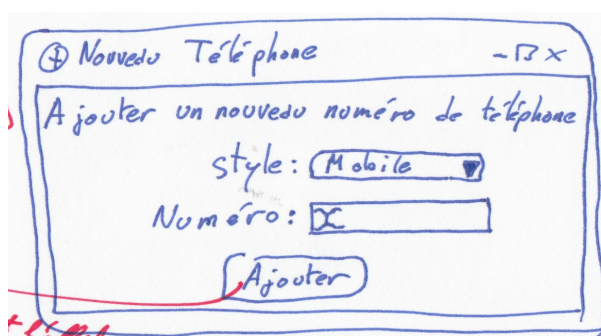 Nouveau Téléphone
Ajouter un nouveau numéro de téléphone
style: Mobile
Numéro: x
Ajouter